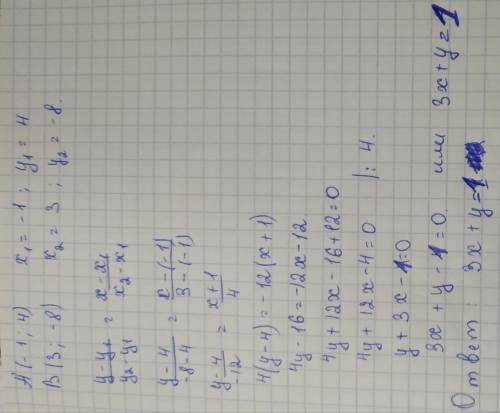 A (-1; 4) x₁ = -1 ; y₁ = 4
B (3; -8) x₂ = 3 ; y₂ = -8.
(y-y₁)/(y₂-y₁) = (x-x₁)/(x₂-x₁)
(y-4)/(-8-4) = (x-(-1))/(3-(-1))
(y-4)/(-12) = (x+1)/4
4(y-4) = -12(x+1)
4y-16=-12x-12
4y+12x-16+12=0
4y+12x-4=0 |:4.
y+3x-1=0
3x+y-1=0. или 3x+y=1
Ответ: 3x+y=1